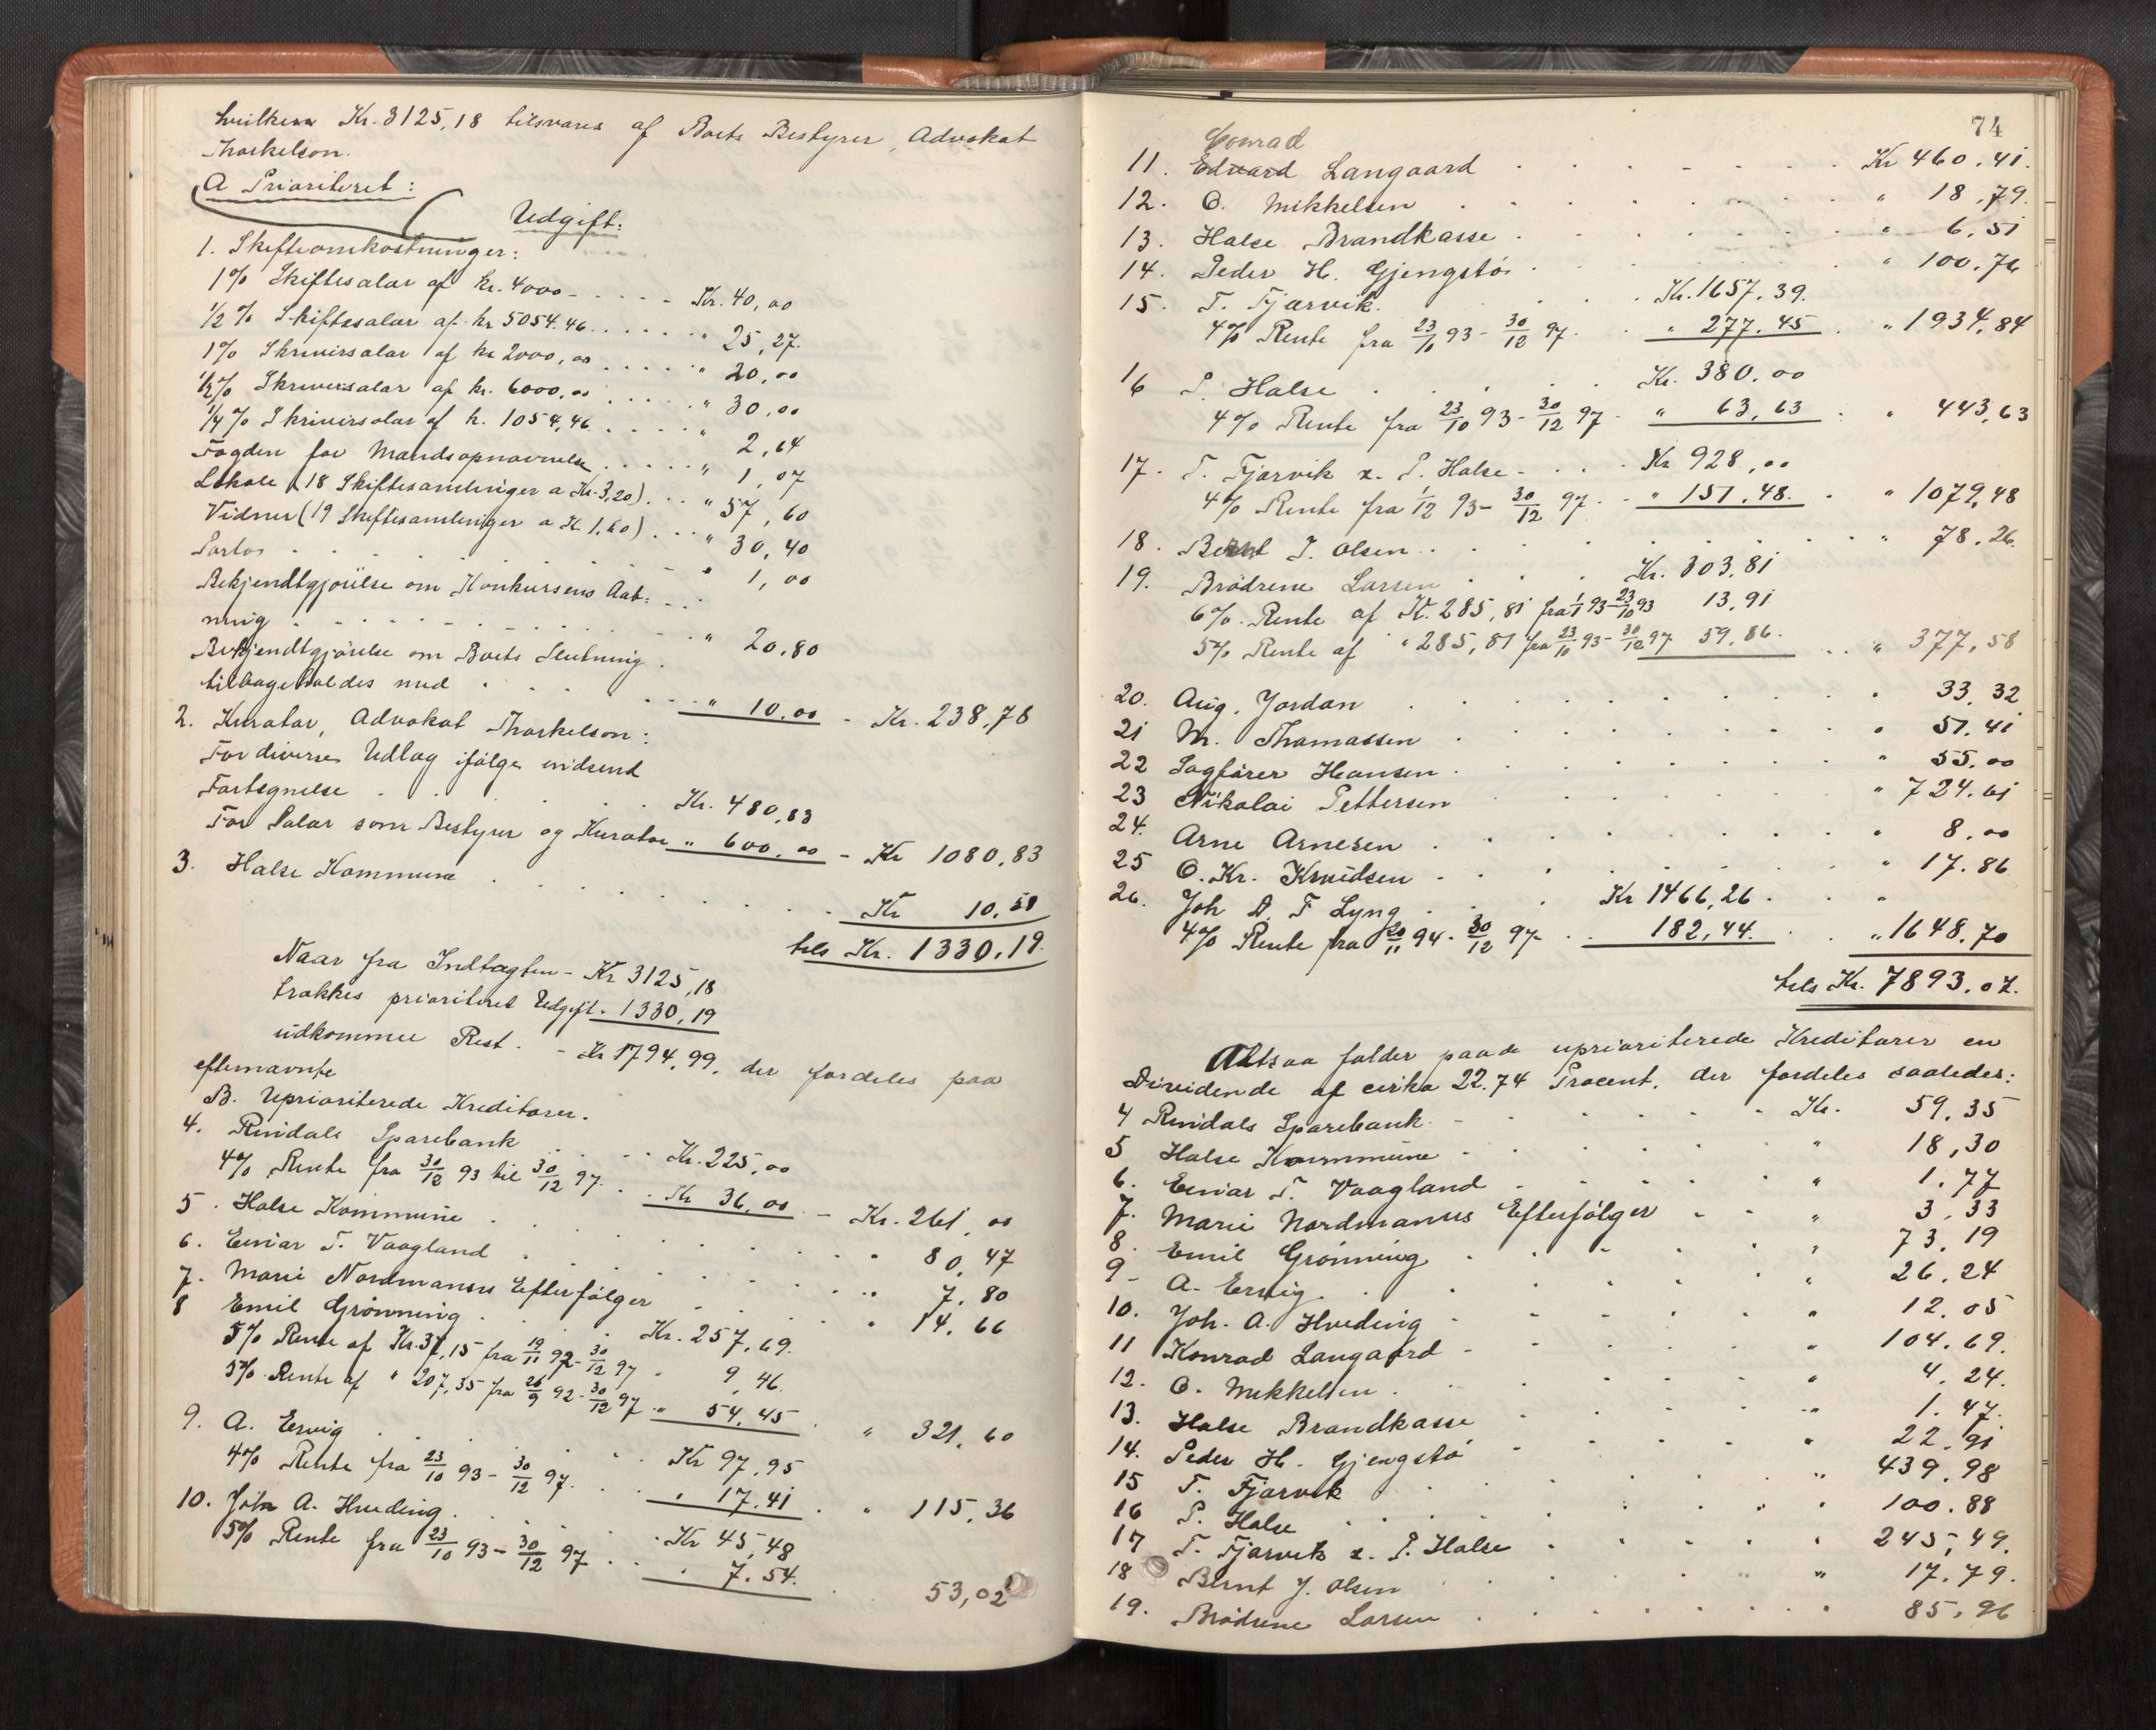 hvilken Kr. 3125,18 tilsvares af Boets Bestyrer, Advokat
Thorkelson.
A Prioriteret:
Udgift:
1. Skifteomkostninger:
1% Skiftesalar af kr. 4000 - Kr. 40,00
1/2% Skiftesalar af kr 5054.46 " 25,27.
1% Skriversalar af kr 2000,00 " 20,00
1/2% Skriversalar af kr. 6000,00 " 30,00
1/4% Skriversalar af k. 1054,46 " 2,64
Fogden for Mandsopnævnelse " 1,07
Lokale (18 Skiftesamlinger a Kr. 3,20) " 57,60
Vidner (19 Skiftesamlinger a K 1,60) " 30,40
Porto " 1,00
Bekjendtgjörelse om Konkursens Aab-
ning " 20,80
Bekjendtgjörelse om Boets Slutning
tilbageholdes med " 10.00 - Kr. 238,78
2. Kurator, Advokat Thorkelson:
For diverse Udlæg ifölge indsend
Fortegnelse Kr. 480,83
For Salar som Bestyrer og Kurator " 600,00 - Kr 1080,83
3. Halse Kommune Kr 10,58
tils Kr. 1330,19.
Naar fra Indtægten - Kr 3125,18
trækkes prioriteret Udgift - 1330,19
udkommer Rest - Kr 1794,99, der fordeles paa
efternævnte
B. Uprioriterede Kreditorer.
4. Rindals Sparebank Kr. 225,00
4% Rente fra 30/12 93 til 30/12 97. Kr 36,00 - Kr. 261,00
5. Halse Kommune " 80,47
6. Einar T. Vaagland " 7.80
7. Marie Nordmanns Efterfölger " 14.66
8 Emil Grönning Kr. 257,69.
5% Rente af Kr. 37,15 fra 19/11 92 - 30/12 97 " 9,46.
5% Rente af " 207,35 fra 26/9 92 - 30/12 97 " 54,45 " 321,60
9. A. Ervig Kr 97,95
4% Rente fra 23/10 93 - 30/12 97. " 17,41 " 115,36
10. Joh A. Hveding Kr 45,48
5% Rente fra 23/10 93 - 30/12 97 " 7.54. 53,02
74
Conrad
11. Edvard Langaard Kr 460.41.
12. O. Mikkelsen " 18,79.
13. Halse Brandkasse " 6.51
14. Peder H. Gjengstö " 100.76
15. T. Fjærvik. Kr. 1657.39.
4% Rente fra 23/10 93 - 30/12 97. " 277.45 " 1934,84
16 P. Halse Kr. 380.00
4% Rente fra 23/10 93 - 30/12 97 " 63,63 " 443,63
17. T. Fjærvik & P. Halse Kr 928,00
4% Rente fra 1/12 93 - 30/12 97. " 151.48. " 1079,48
18. Bernt J. Olsen " 78.26.
19. Brödrene Larsen Kr. 303,81
6% Rente af K. 285,81 fra 1/1 93 - 23/10 93 13,91
5% Rente af " 285,81 fra 23/10 93 - 30/12 97 59,86. " 377,58
20. Aug. Jordan " 33,32
21 M. Thomassen " 51.41
22 Sagförer Hansen " 55.00
23 Nikolai Pettersen " 724.61
24. Arne Arnesen " 8.00
25 O. Kr. Knudsen " 17.86
26. Joh D. F Lyng Kr 1466,26
4% Rente fra 20/11 94 - 30/12 97 182,44. " 1648,70
tils Kr. 7893.07.
Altsaa falder paa de uprioriterede Kreditorer en
Dividende af cirka 22.74 Procent, der fordeles saaledes:
4 Rindals Sparebank Kr. 59.35
5 Halse Kommune " 18,30
6. Einar T. Vaagland " 1.77
7. Marie Nordmanns Efterfölger " 3.33
8. Emil Grönning " 73.19
9 - A. Ervig. " 26.24
10. Joh. A. Hveding " 12.05
11 Konrad Langaard " 104.69.
12. O. Mikkelsen " 4.24.
13. Halse Brandkasse " 1.47.
14. Peder H. Gjengstö " 22.91
15 T. Fjærvik " 439.98
16 P. Halse " 100.88
17 T. Fjærvik & P. Halse 245,49.
18 Bernt J. Olsen " 17.79.
19. Brödrene Larsen " 85.96